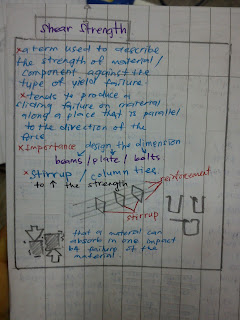 Shear Strength
* a term used to describe
the strength of material /
component against the
type of yield failure
* tends to produce a
sliding failure on material
along a place that is parallel
to the direction of the
force
* Importance design the dimension
beams / plate / bolts
* Stirrup / column ties
to ↑ the strength
reinforcement
stirrup
that a material can
absorb in one impact
b4 failure of the
material